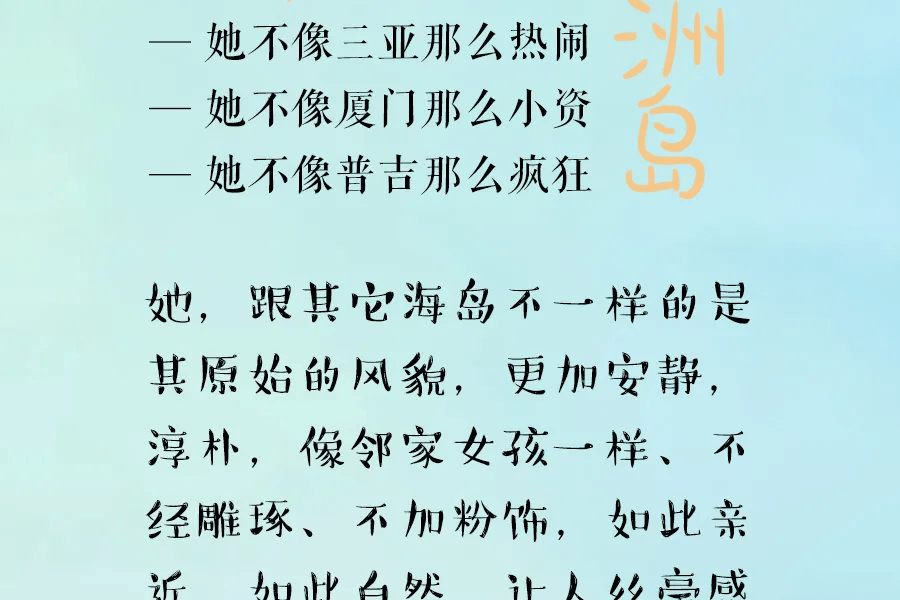 — 她不像三亚那么热闹
— 她不像厦门那么小资
— 她不像普吉那么疯狂
洲岛
她，跟其它海岛不一样的是
其原始的风貌，更加安静，
淳朴，像邻家女孩一样、不
经雕琢、不加粉饰，如此亲
近、如此自然，让人丝毫感